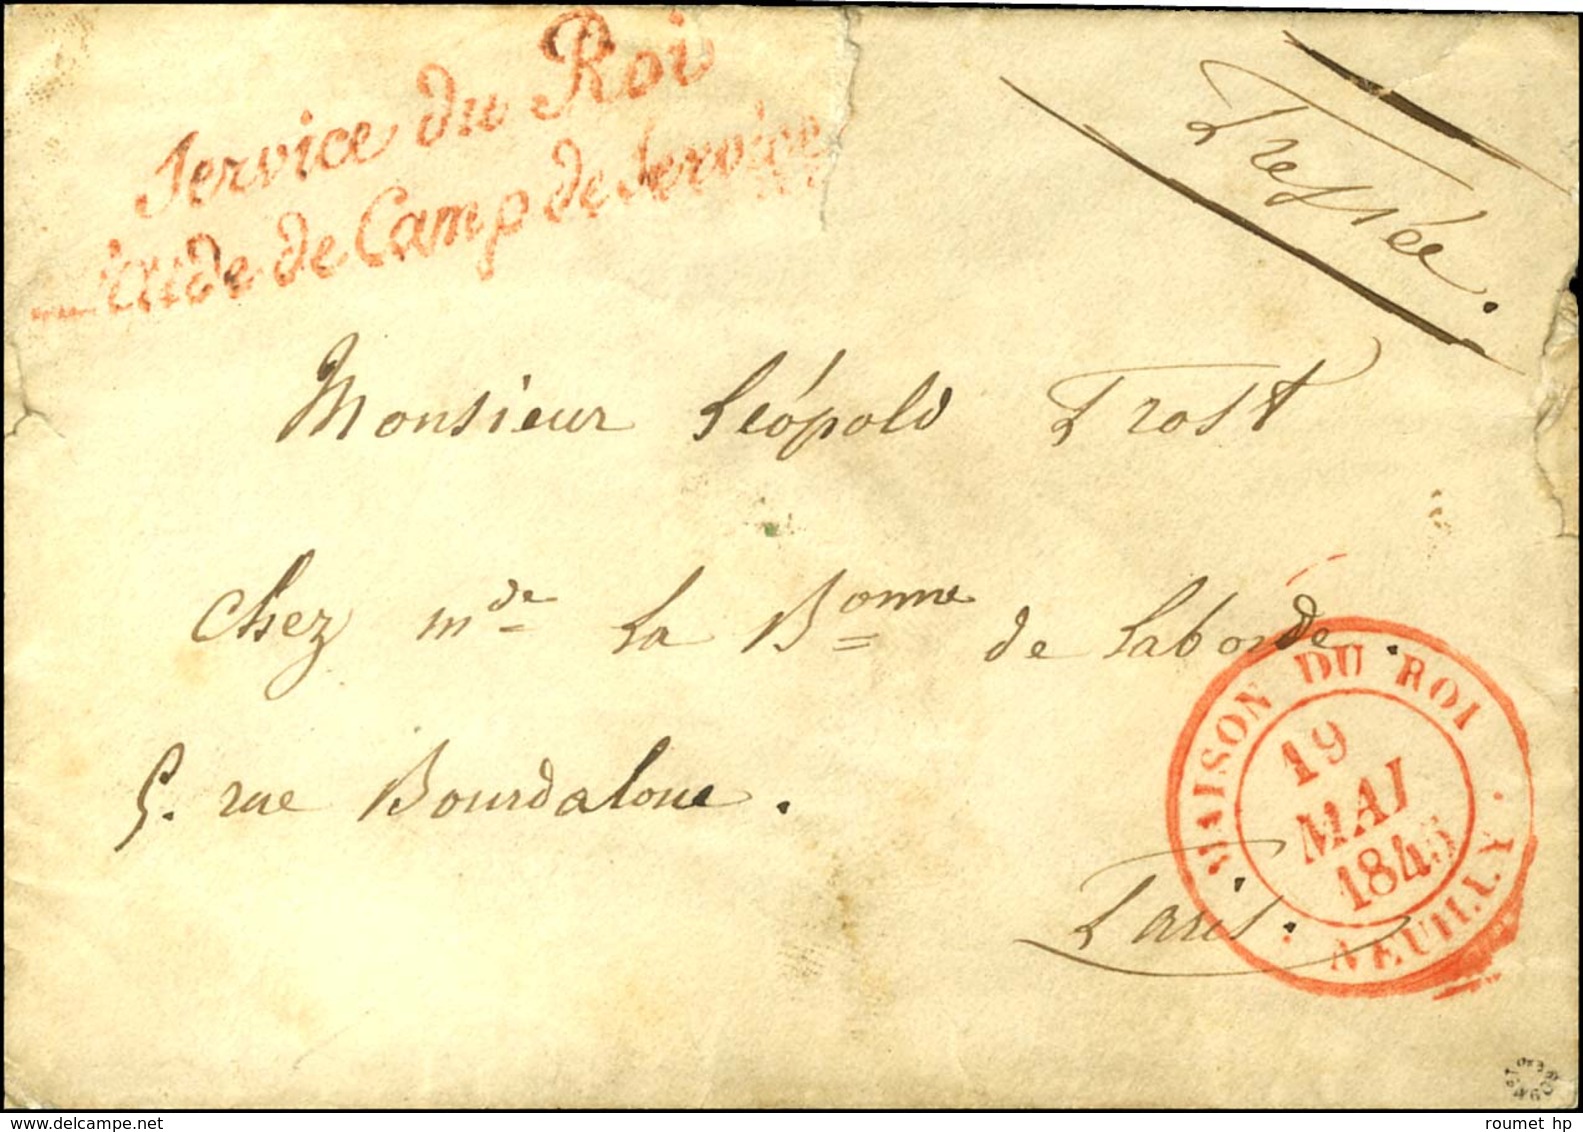 Service du Roi
L'Aide de Camp de Service
Pressée.
Monsieur Léopold Prost
chez mde La Bonne de Laborde.
5. rue Bourdaloue.
Paris.
MAISON DU ROI
19
MAI
1845
NEUILLY
roumet hp